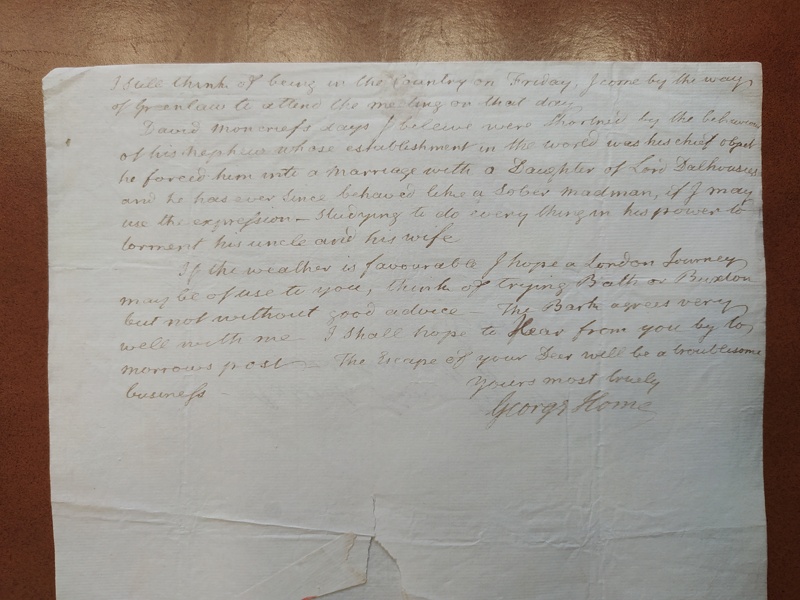 I still think of being in the Country on Friday, I come by the way
of Greenlaw to attend the meeting on that day
David Moncriefs days I beleive were shortned by the behaviour
of his nephew whose establishment in the world was his chief object
he forced him into a marriage with a Daughter of Lord Dalhousies
and he has ever since behaved like a Sober madman, if I may
use the expression – Studying to do every thing in his power to
torment his uncle and his wife
If the weather is favourable I hope a London Journey
may be of use to you, think of trying Bath or Buxton
but not without good advice – The Bark agrees very
well with me – I shall hope to Hear from you by to
morrows post – The Escape of your Deer will be a troublesome
business –
Yours most truely
George Home